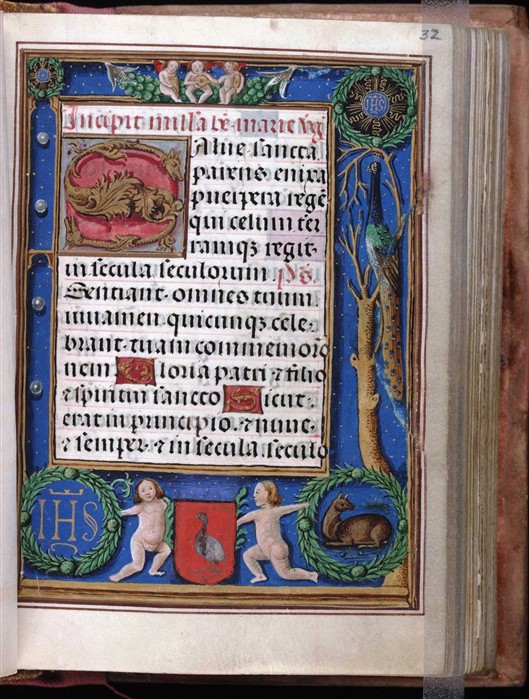 32
IHS
Incipit missa bte marie vg̃
Salue sancta
parens enixa
puerpera regẽ
qui celum ter
ramqꝫ regit
in secula seculorum p̃s.
Sentiant omnes tuum
iuuamen quicunqꝫ cele
brant tuam commemorõ
nem Gloria patri ⁊ filio
⁊ spiritui sancto Sicut
erat in principio. ⁊ nunc
⁊ semper ⁊ in secula seculo
IHS